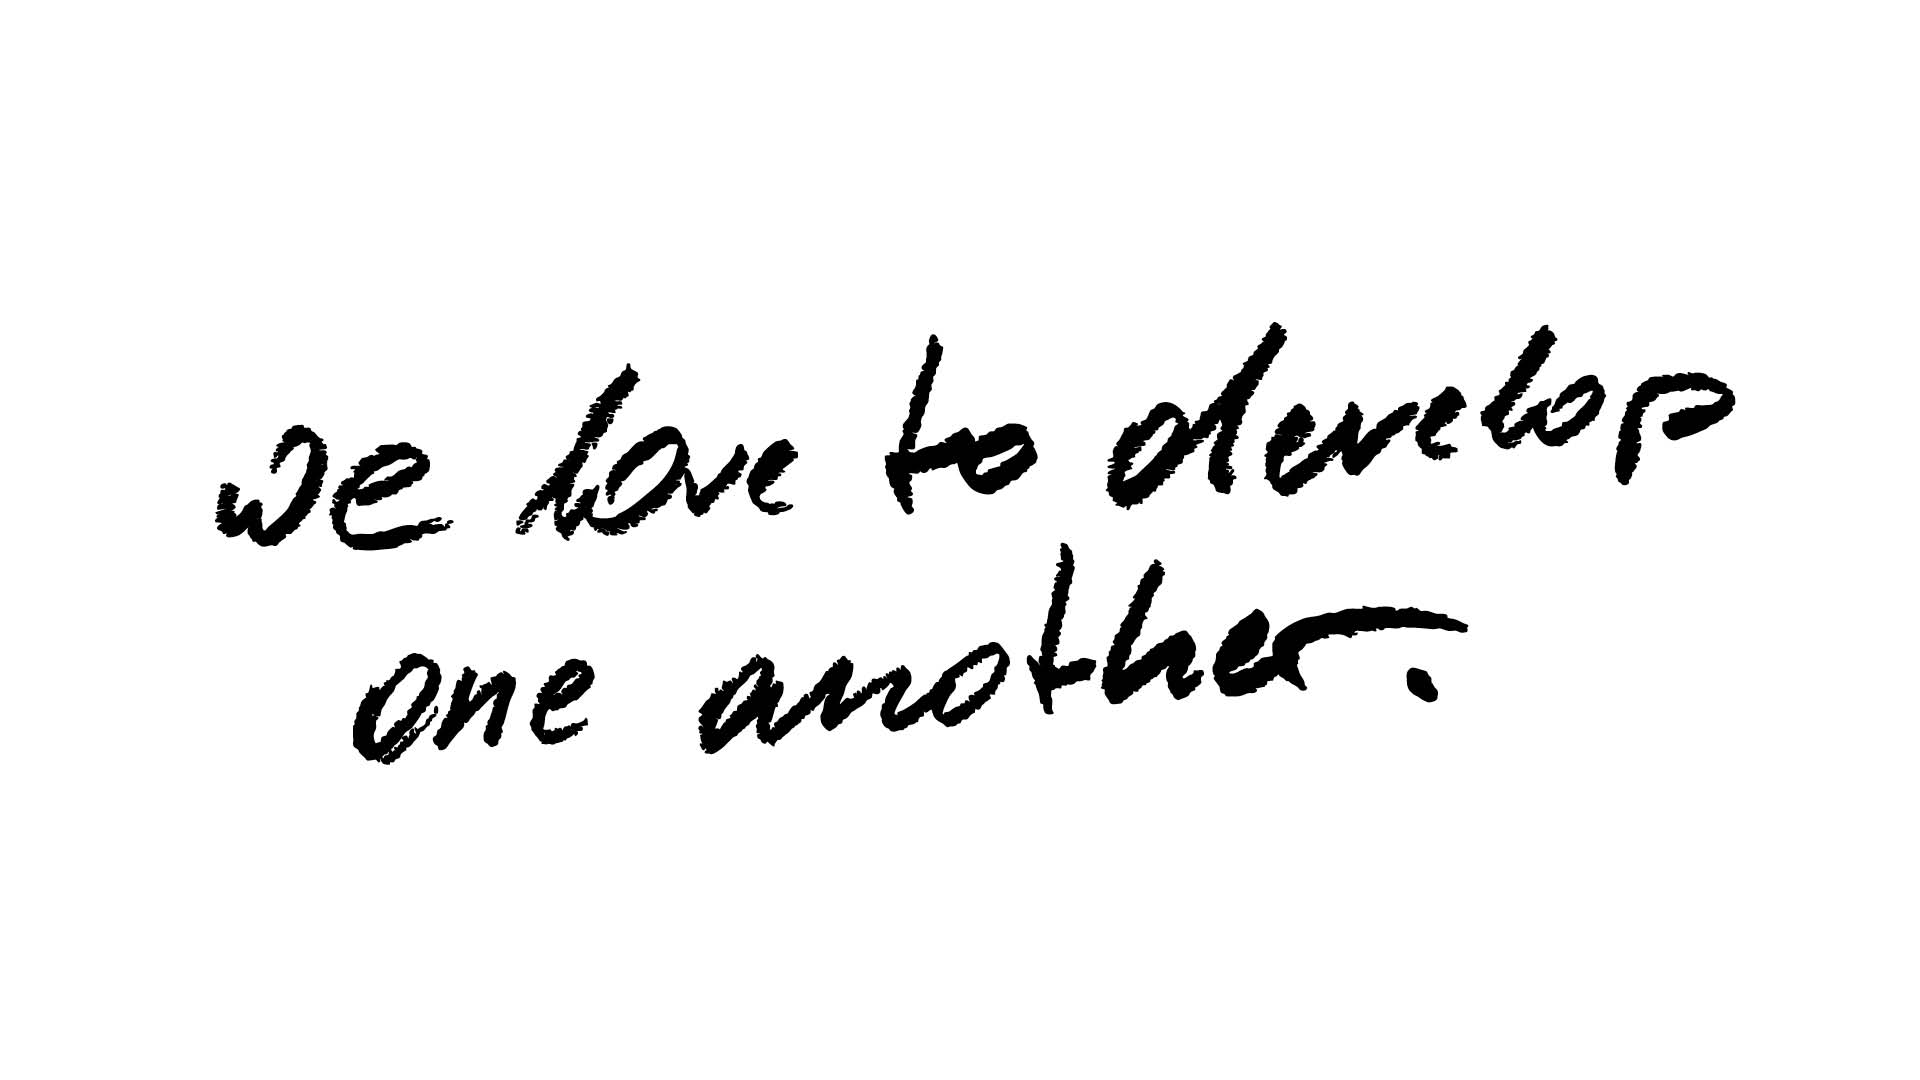 we love to develop
one another.